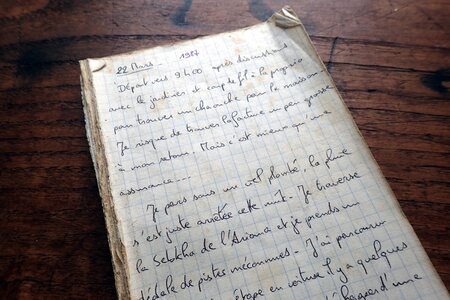 22 Mars - 1987
Départ vers 9h00 après discussions
avec le jardinier et coup de fil à la
pour trouver une chouche pour la maison.
Je risque de trouver la facture un peu grosse
à mon retour. Mais c'est mieux qu'une
assurance ---
Je pars sous un ciel plombé, la pluie
s'est juste arrêtée cette nuit. Je traverse
la Sebkha de l'Ariana et je prends un
dédale de pistes méconnues. J'ai parcouru
étape en voiture il y a quelques